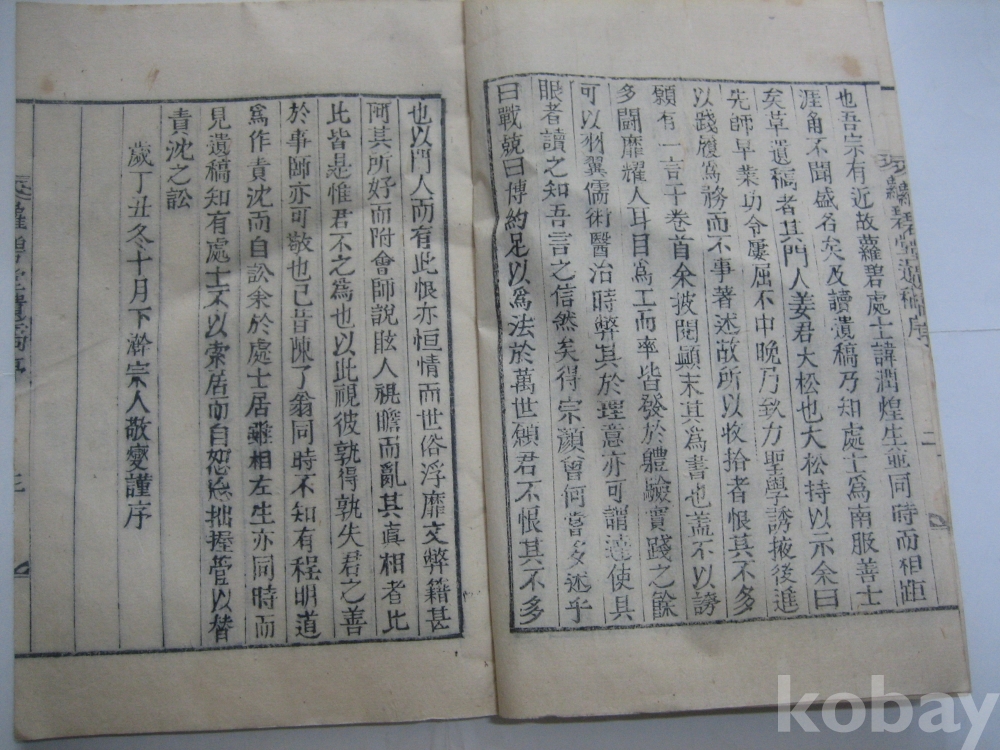 蘿碧堂遺稿序
二
也吾宗有近故蘿碧處士諱潤煌生並同時而相距
涯角不聞盛名矣及讀遺稿乃知處士爲南服善士
矣草遺稿者其門人姜君大松也大松持以示余曰
先師早業功令屢屈不中晚乃致力聖學誘掖後進
以踐履爲務而不事著述故所以收拾者恨其不多
願有一言于卷首余披閱顚末其爲書也盖不以誇
多鬪靡耀人耳目爲工而率皆發於軆驗實踐之餘
可以羽翼儒術醫治時弊其於理意亦可謂達使具
眼者讀之知吾言之信然矣得宗顔曾何嘗多述乎
曰戰兢曰博約足以爲法於萬世願君不恨其不多
也以門人而有此恨亦恒情而世俗浮靡文弊籍甚
阿其所好而附會師說眩人視瞻而亂其眞相者比
比皆是惟君不之爲也以此視彼孰得孰失君之善
於事師亦可敬也已昔陳了翁同時不知有程明道
爲作責沈而自訟余於處士居雖相左生亦同時而
見遺稿知有處士不以索居而自恕忘拙握管以替
責沈之訟
歲丁丑冬十月下澣宗人敬燮謹序
三
kobay